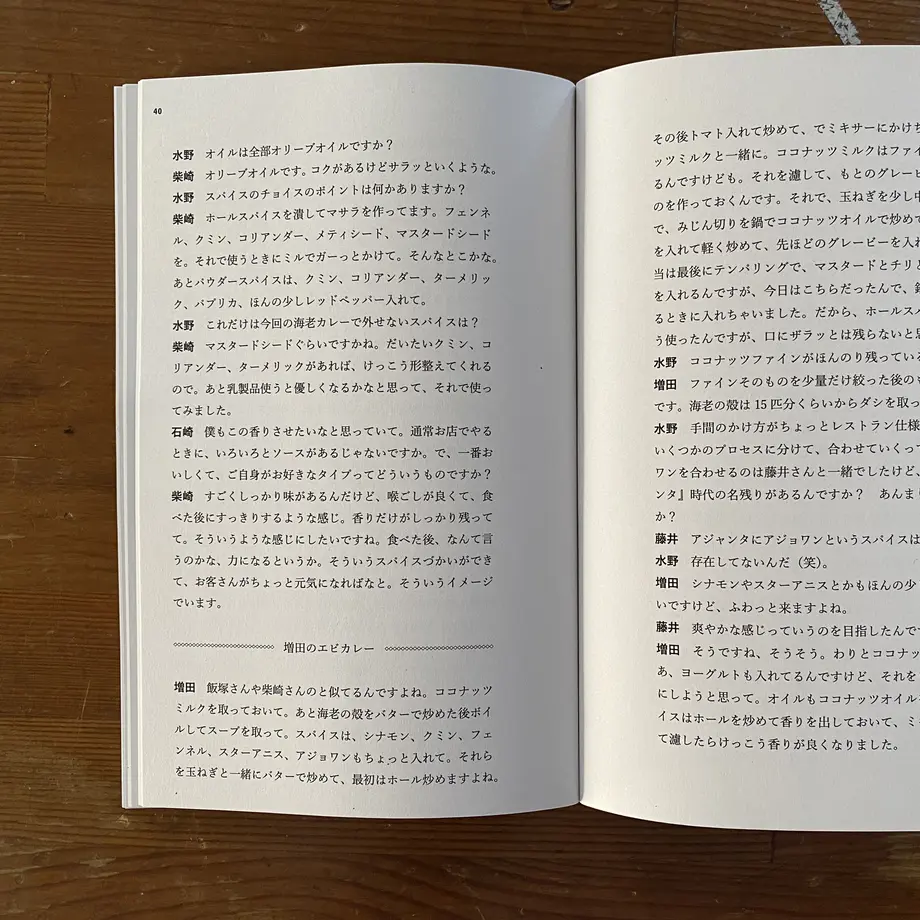 40
水野　オイルは全部オリーブオイルですか？
柴崎　オリーブオイルです。コクがあるけどサラッといくような。
水野　スパイスのチョイスのポイントは何かありますか？
柴崎　ホールスパイスを潰してマサラを作ってます。フェンネ
ル、クミン、コリアンダー、メティシード、マスタードシード
を。それで使うときにミルでガーっとかけて。そんなとこかな。
あとパウダースパイスは、クミン、コリアンダー、ターメリッ
ク、パプリカ、ほんの少しレッドペッパー入れて。
水野　これだけは今回の海老カレーで外せないスパイスは？
柴崎　マスタードシードぐらいですかね。だいたいクミン、コ
リアンダー、ターメリックがあれば、けっこう形整えてくれる
ので。あと乳製品使うと優しくなるかなと思って、それで使っ
てみました。
石崎　僕もこの香りさせたいなと思っていて。通常お店でやる
ときに、いろいろとソースがあるじゃないですか。で、一番お
いしくて、ご自身がお好きなタイプってどういうものですか？
柴崎　すごくしっかり味があるんだけど、喉ごしが良くて、食
べた後にすっきりするような感じ。香りだけがしっかり残って
て。そういうような感じにしたいですね。食べた後、なんて言
うのかな、力になるというか。そういうスパイスづかいができ
て、お客さんがちょっと元気になればなと。そういうイメージ
でいます。
増田のエビカレー
増田　飯塚さんや柴崎さんのと似てるんですよね。ココナッツ
ミルクを取っておいて。あと海老の殻をバターで炒めた後ボイ
ルしてスープを取って。スパイスは、シナモン、クミン、フェ
ンネル、スターアニス、アジョワンもちょっと入れて。それら
を玉ねぎと一緒にバターで炒めて、最初はホール炒めますよね。
その後トマト入れて炒めて、でミキサーにかけ
ッツミルクと一緒に。ココナッツミルクはファイ
るんですけども。それを濾して、もとのグレービ
のを作っておくんです。それで、玉ねぎを少し
で、みじん切りを鍋でココナッツオイルで炒め
を入れて軽く炒めて、先ほどのグレービーを入
当は最後にテンパリングで、マスタードとチリ
を入れるんですが、今日はこちらだったんで、
るときに入れちゃいました。だから、ホールス
う使ったんですが、口にザラッとは残らないと
水野　ココナッツファインがほんのり残ってい
増田　ファインそのものを少量だけ絞った後の
です。海老の殻は15匹分くらいからダシを取っ
水野　手間のかけ方がちょっとレストラン仕様
いくつかのプロセスに分けて、合わせていくっ
ワンを合わせるのは藤井さんと一緒でしたけど、
ンタ』時代の名残りがあるんですか？　あんま
か？
藤井　アジャンタにアジョワンというスパイスは
水野　存在してないんだ（笑）。
増田　シナモンやスターアニスとかもほんの少
いですけど、ふわっと来ますよね。
藤井　爽やかな感じっていうのを目指したんで
増田　そうですね、そうそう。わりとココナッ
あ、ヨーグルトも入れてるんですけど、それを
にしようと思って。オイルもココナッツオイル
イスはホールを炒めて香りを出しておいて、ミ
て濾したらけっこう香りが良くなりました。